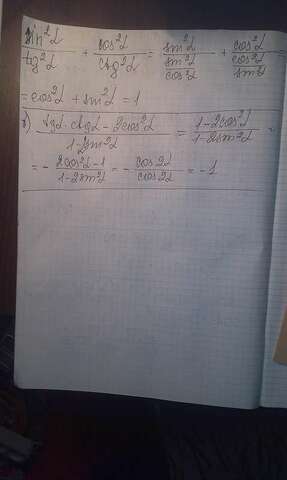 sin²α/tg²α + cos²α/ctg²α = sin²α/(sin²α/cos²α) + cos²α/(cos²α/sin²α) =
= cos²α + sin²α = 1
(tgα · ctgα - 2cos²α)/(1-2sin²α) = (1-2cos²α)/(1-2sin²α) =
= - (2cos²α-1)/(1-2sin²α) = - cos2α/cos2α = -1